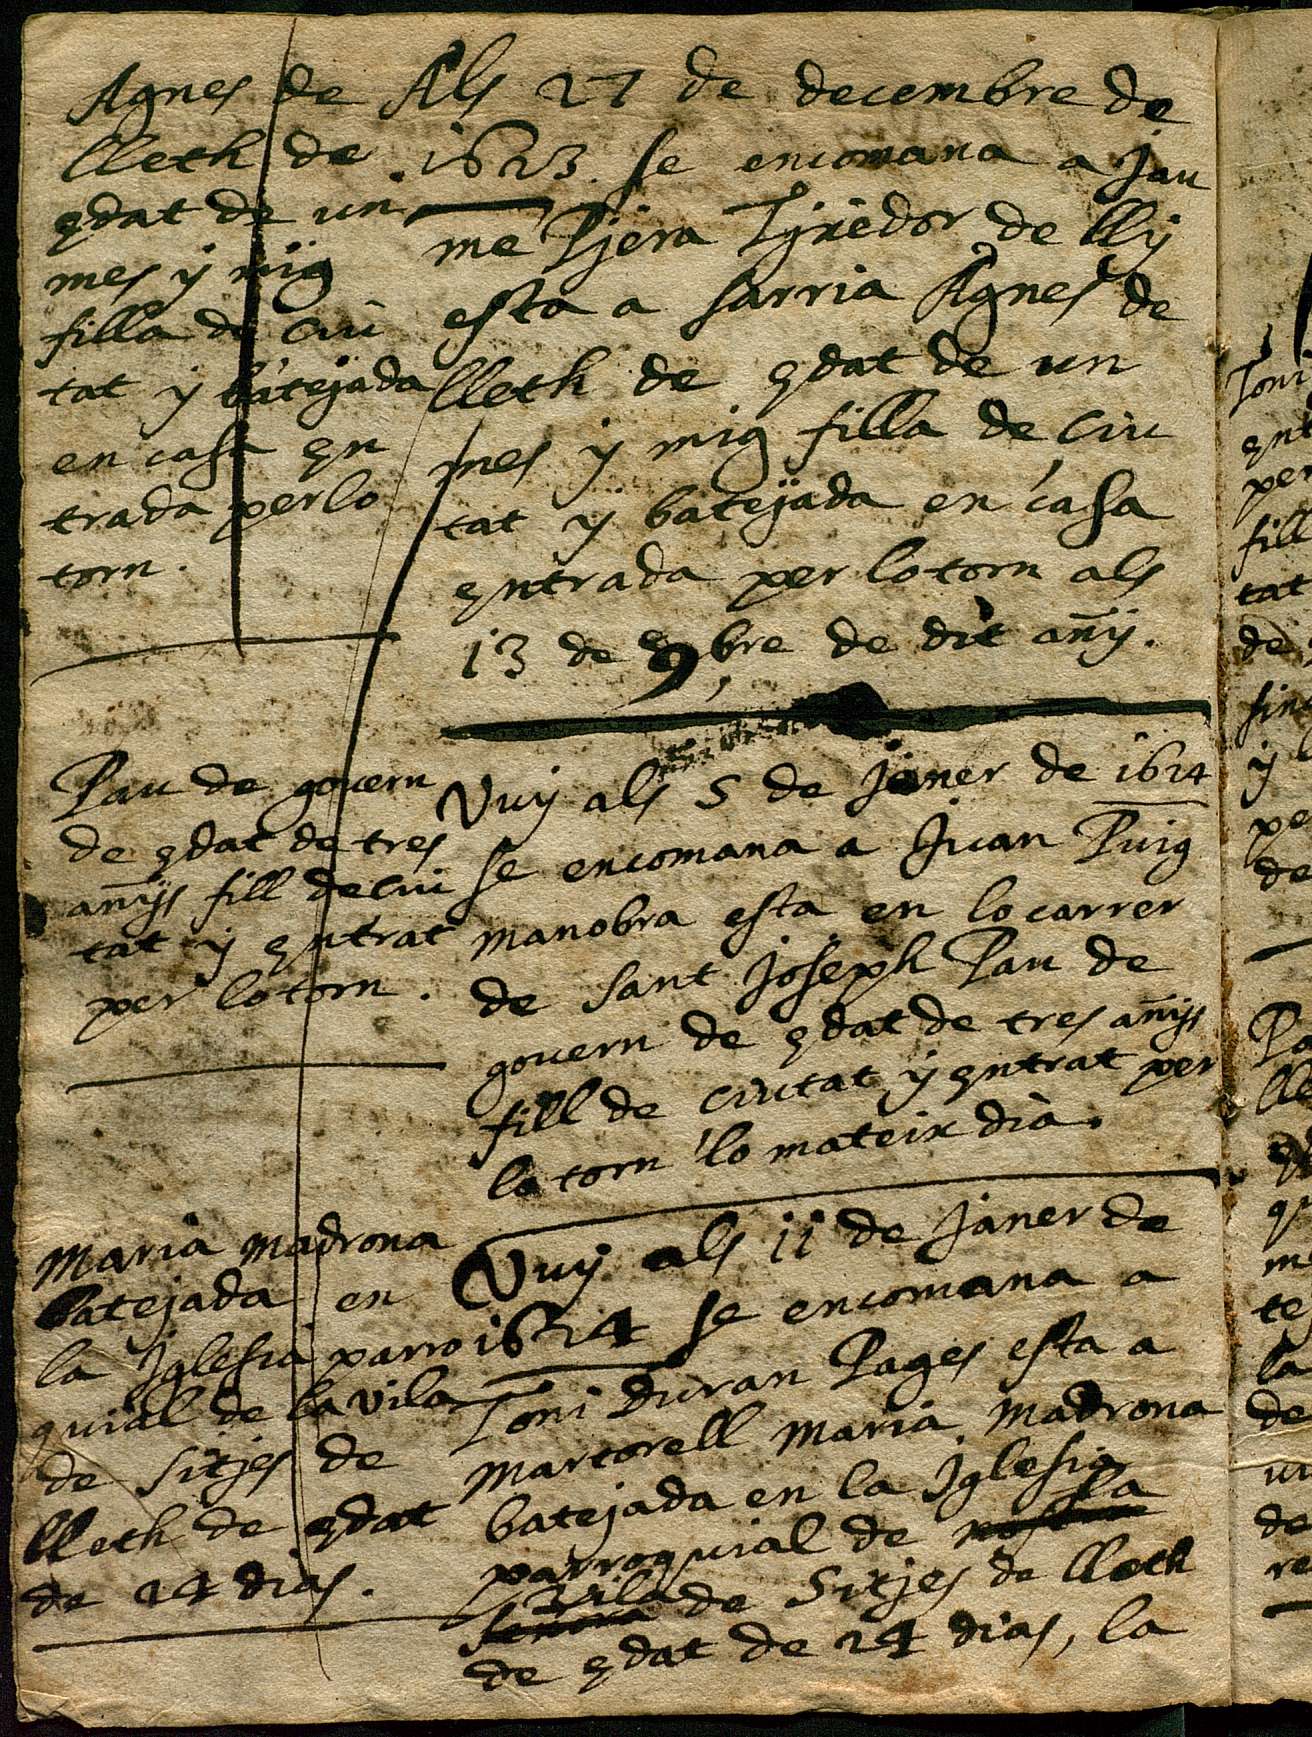 Agnes de
lleth de
edat de un
mes y mig
filla de ciu
tat y batejada
en casa en
trada per lo
torn.
Als 27 de decembre de
.1623. se encomana a Jau
me Pjera de lly
esta a Sarria Agnes de
lleth de edat de un
mes y mig filla de ciu
tat y batejada en casa
entrada per lo torn als
13 de 9bre de dit añy.
Pau de govern
de edat de tres
añys fill de ciu
tat y entrat
per lo torn.
Vuy als 5 de Janer de 1624
se encomana a Juan Puig
manobra esta en lo carrer
de Sant Joseph Pau de
govern de edat de tres añys
fill de ciutat y entrat per
lo torn lo mateix dia.
Maria Madrona
batejada en
la Iglesia parro
quial de la vila
de Sitjes de
lleth de edat
de 24 dias.
Vuy als 11 de Janer de
1624 se encomana a
Toni Duran Pages esta a
Martorell Maria Madrona
batejada en la Iglesia
parroquial de la
vila de Sitjes de lleth
de edat de 24 dias, la
Toni
ent
per
fill
tat
de
sin
y
pe
de
Pa
lle
m
te
la
de
de
re